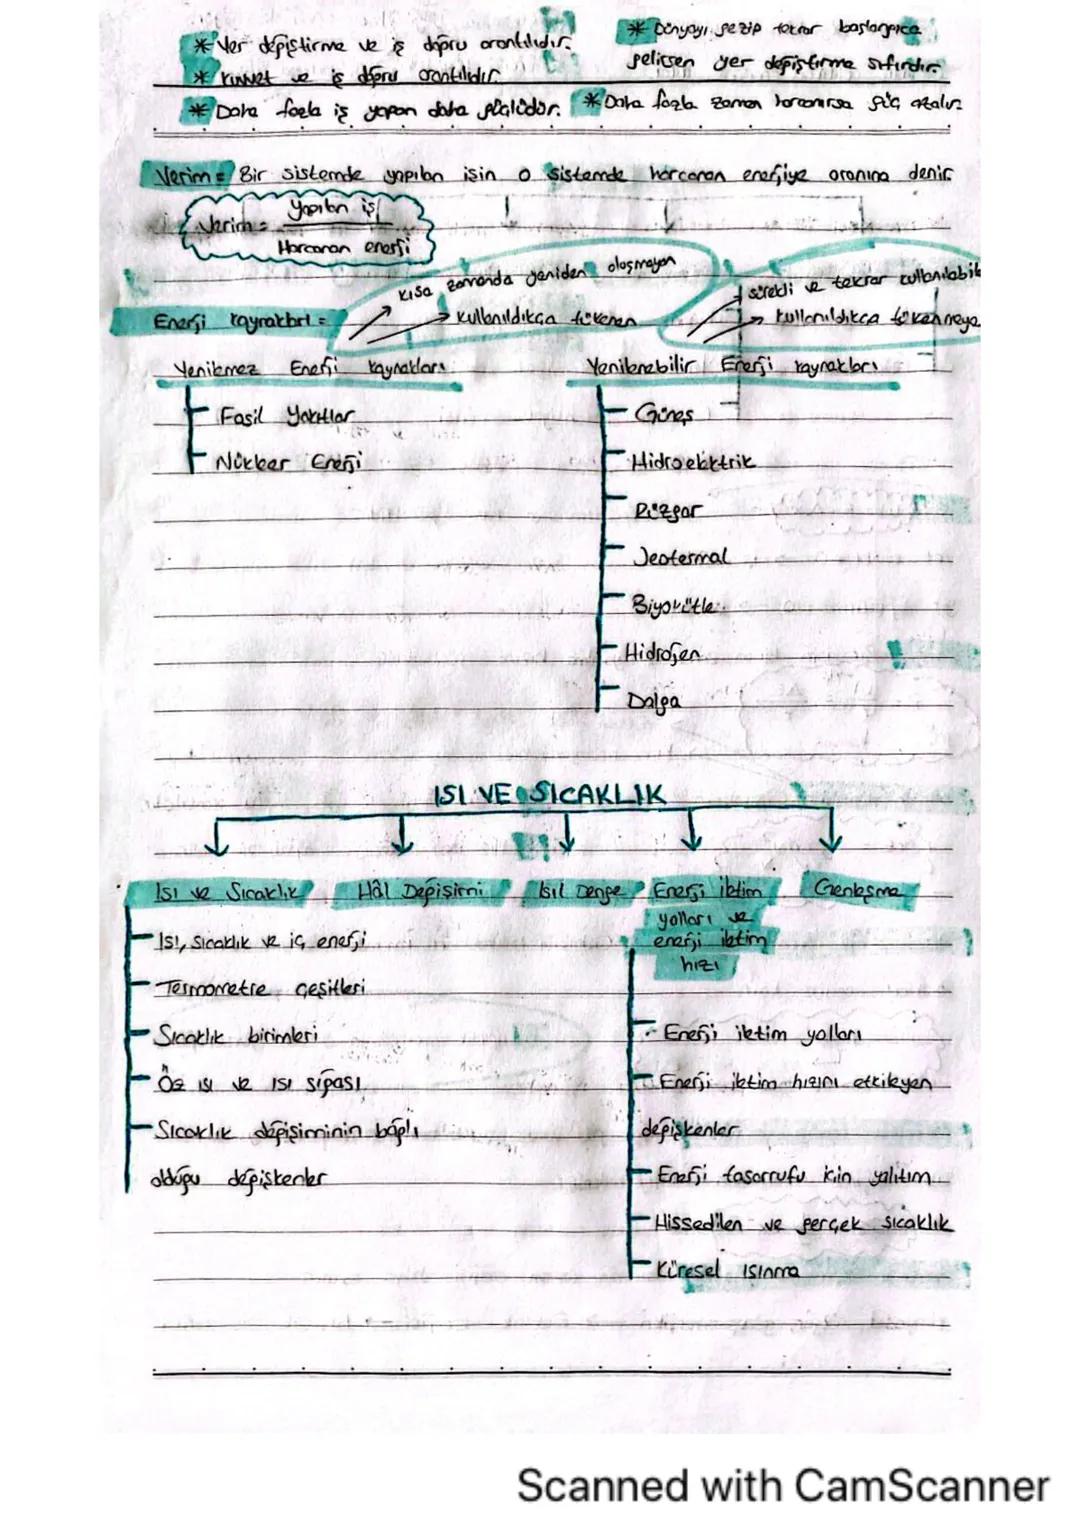 * Yer değiştirme ve iş doğru orantılıdır.
* Kuvvet ve iş doğru orantılıdır.
* Dünyayı gezip tekrar başlangıca
gelirsen yer değiştirme sıfırdır.
* Daha fazla iş yapan daha güçlüdür. * Daha fazla zaman harcanırsa güç azalır.
Verim = Bir sistemde yapılan işin o sistemde harcanan enerjiye oranına denir
Verim = Yapılan iş
Harcanan enerji
Enerji kaynakları =
kısa zamanda yeniden oluşmayan
kullanıldıkça tükenen
sürekli ve tekrar kullanılabile
kullanıldıkça tükenmeye
Yenilemez Enerji kaynakları
Fosil Yakıtlar
Nükleer Enerji
Yenilenebilir Enerji kaynakları
Güneş
Hidroelektrik
Rüzgar
Jeotermal
Biyokütle
Hidrojen
Dalga
ISI VE SICAKLIK
Isı ve Sıcaklık Hâl Değişimi Isıl Denge Enerji iletim
yolları ve
enerji iletim
hızı
Genleşme
Isı, sıcaklık ve iç enerji
Termometre çeşitleri
Sıcaklık birimleri
Öz ısı ve ısı sığası
Sıcaklık değişiminin bağlı
olduğu değişkenler
Enerji iletim yolları
Enerji iletim hızını etkileyen
değişkenler
Enerji tasarrufu için yalıtım
Hissedilen ve gerçek sıcaklık
Küresel ısınma
Scanned with CamScanner